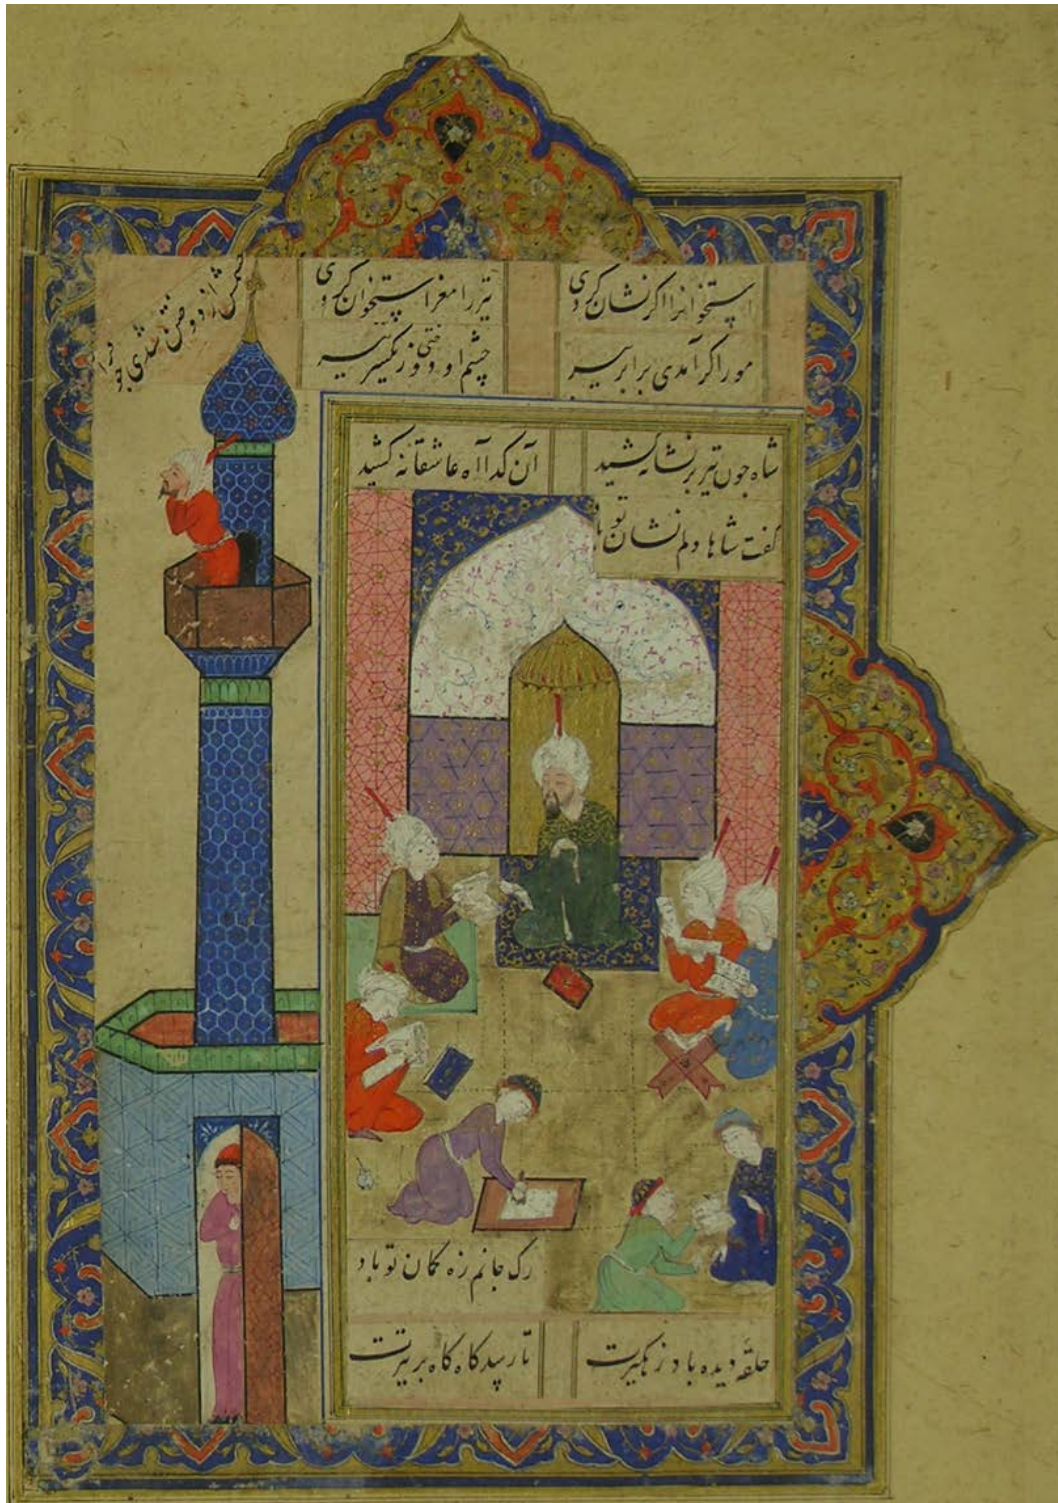 استخوانرا اکر نشان کردی
تیر را مغز استخوان کردی
مور اکر آمدی برابر تیر
چشم او دوختی ز یکسر تیر
شاه جون تیر بر نشانه کشید
آن کدا آه عاشقانه کشید
کفت شاها دلم نشان تو باد
رک جانم زه کمان تو باد
حلقه دیده باد زهکیرت
تا رسد کاه کاه بر تیرت